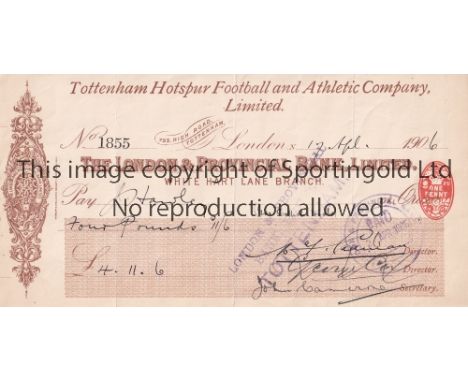 Tottenham Hotspur Football and Athletic Company,
Limited.
No 1855
748, HIGH ROAD,
TOTTENHAM.
London 12 Apl. 1906
THE LONDON & PROVINCIAL BANK, LIMITED
This image copyright of Sportingold Ltd
WHITE HART LANE BRANCH.
Pay J Hawley Order
No reproduction allowed
ONE
PENNY
Four Pounds 11/6
Director.
£4.11.6
George Cox Director.
John Cameron Secretary.